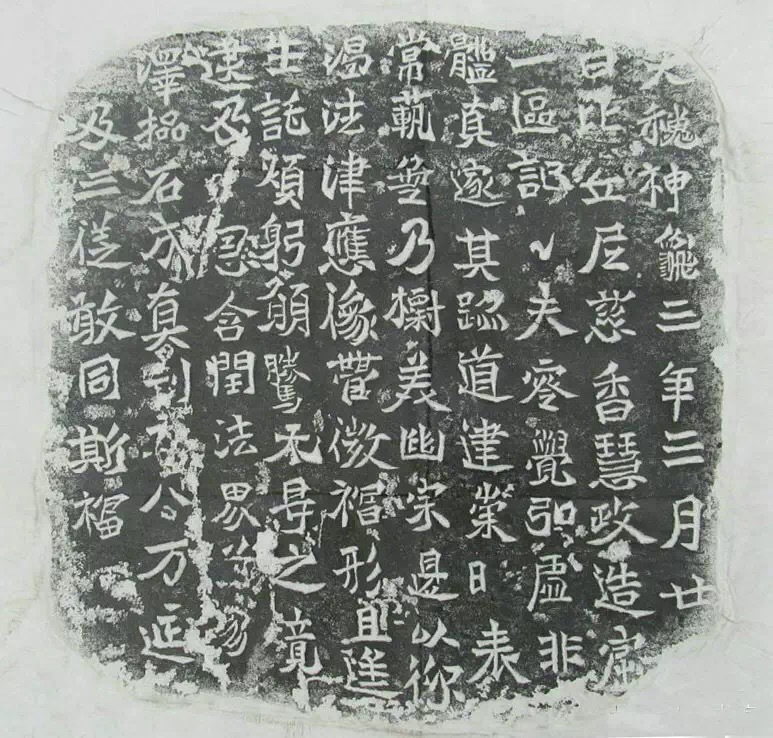 大魏神龜三年三月廿
日比丘尼慈香慧政造窟
一區記之夫零覺弘虛非
體真邃其蹤道建崇日表
常範無乃標美幽宗是以仰
渴法津應像營微福形且遙
生託煩躬願騰无㝵之境
逮及恩含閏法界
澤石成真刊万延
及三從敢同斯福